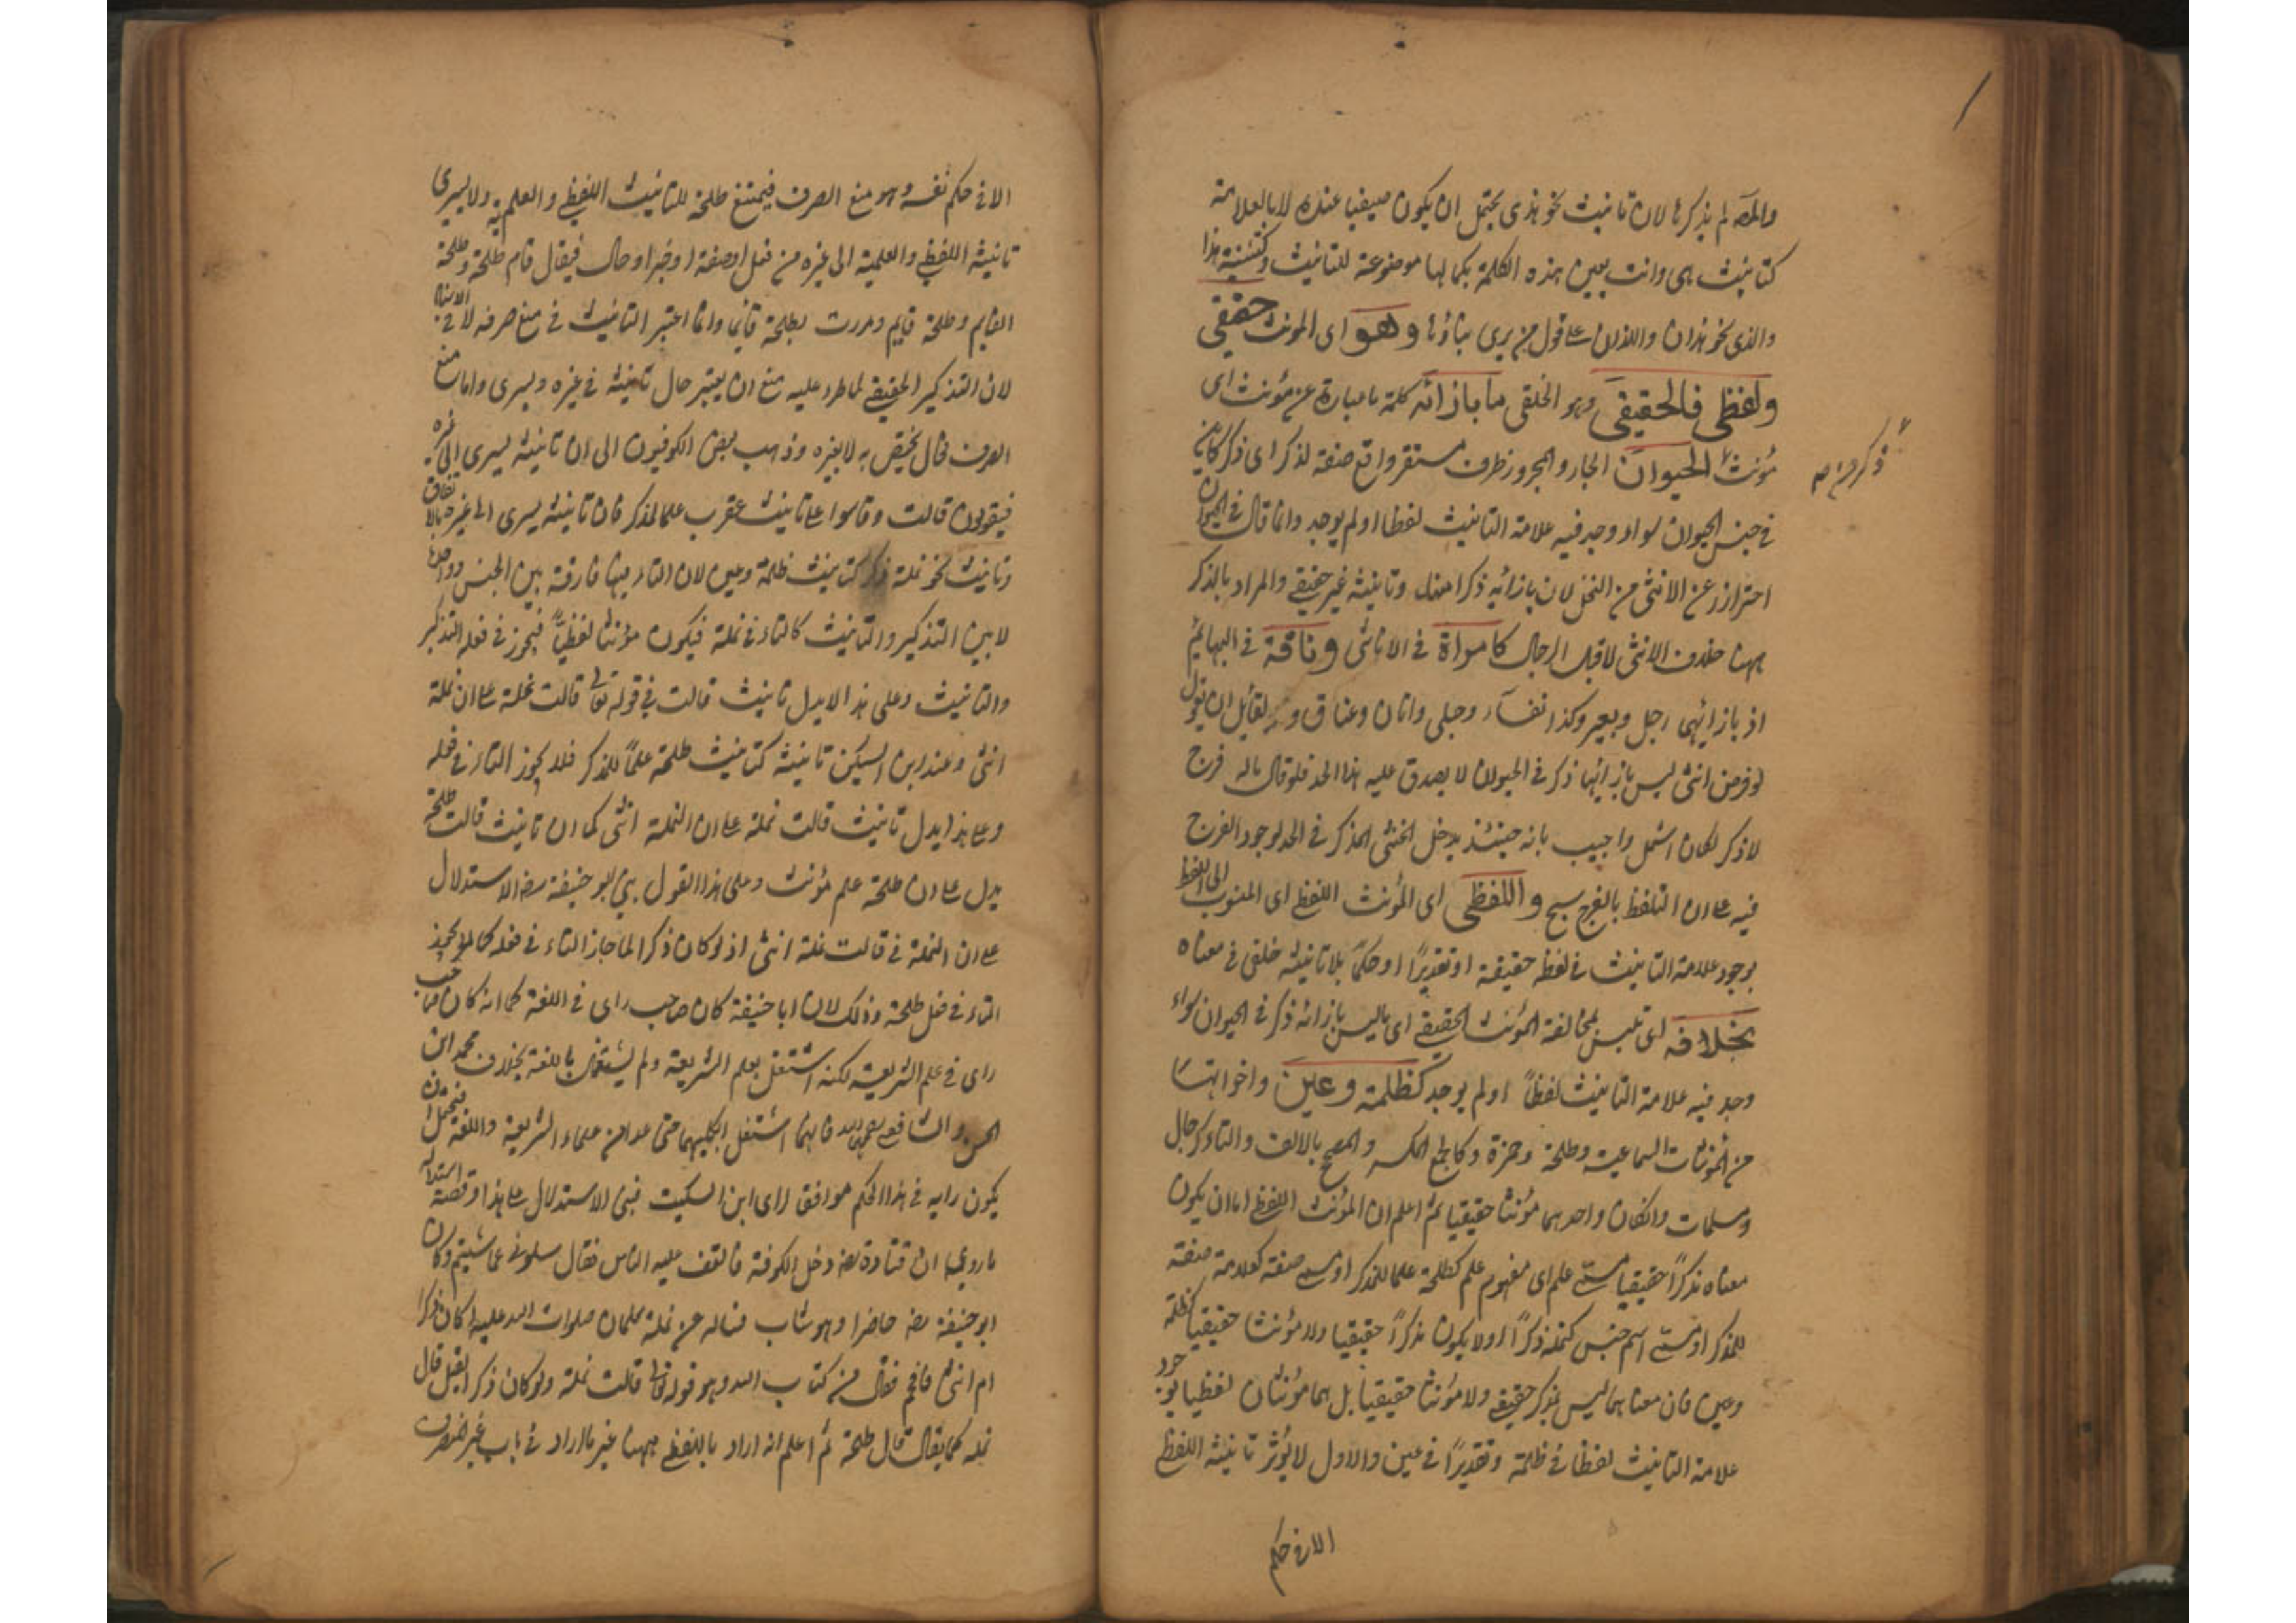 والمصـ لم يذكرها لان تانيث نحو هذى يحتمل ان يكون صيغيا عنده لا بالعلامة
كتانيث هى وانت يعين هذه الكلمة بكمالها موضوعة للتانيث وكتثنية هذا
والذى نحو هذان واللذان على قول من يرى بناؤها وهو اى المونث حقيقى
ولفظى فالحقيقى وهو الخلقى ما بازائه كلمة ما عبارة عن مؤنث اى
مؤنث الحيوان الجار والمجرور ظرف مستقر واقع صفة لذكر اى ذكر كاين
ذكر من
فى جنس الحيوان سواء وجد فيه علامة التانيث لفظا اولم يوجد وانما قال فى الحيوان
احتراز عن الانثى من النخل لان بازائه ذكرا منه وتانيثه غير حقيقى والمراد بالذكر
ههنا خلاف الانثى لا قبل الرجال كامراة فى الاناثى وناقة فى البهائم
اذ بازائهى رجل وبعير وكذا نفساء وحبلى واتان وعناق ولقايل ان يقول
لو فرض انثى ليس بازائها ذكر فى الحيوان لا يصدق عليه هذا الحد فلو قال ماله فرج
لا ذكر لكان اشمل واجيب بانه حينئذ يدخل الخنثى المذكر فى الحد لوجود الفرج
فيه على ان التلفظ بالفرج سمج واللفظى اى المؤنث اللفظى اى المنسوب الى اللفظ
بوجود علامة التانيث فى لفظ حقيقة او تقديرًا او حكمًا بلا تانيث خلقى فى معناه
بخلافه اى تلبس بمخالفة المؤنث الحقيقى اى ما ليس بازائه ذكر فى الحيوان سواء
وجد فيه علامة التانيث لفظاً اولم يوجد كظلمة وعين واخواتها
من المؤنثات السماعية وطلحة وحمزة وكالجمع المكسر والمصحح بالالف والتاء كرجال
ومسلمات وان كان واحدهما مؤنثا حقيقيا ثم اعلم ان المؤنث اللفظى اما ان يكون
معناه مذكرًا حقيقيا مسمى علم اى مفهوم علم كطلحة علما للمذكر او مسمى صفة كعلامة صفة
للمذكر او مسمى اسم جنس كنملة ذكرًا اولا يكون مذكرًا حقيقيا ولا مؤنثا حقيقيا كظلمة
وعين فان معناهما ليس بمذكر حقيقى ولا مؤنثا حقيقيا بل هما مؤنثان لفظيا لوجود
علامة التانيث لفظا فى ظلمة وتقديرًا فى عين والاول لا يؤثر تانيثه اللفظى
الا فى حكم
الا فى حكم نفسه وهو منع الصرف فيمتنع طلحة للتانيث اللفظى والعلمية ولا يسرى
تانيثه اللفظى والعلمية الى غيره من فعل او صفة او خبر او حال فيقال قام طلحة وطلحة
القايم وطلحة قايم ومررت بطلحة قائما وانما اعتبر التانيث فى منع صرفه لا فى الاسناد
لان التذكير الحقيقى لما طرء عليه منع ان يعتبر حال تانيثه فى غيره ويسرى واما منع
الصرف فحال يختص به لا بغيره وذهب بعض الكوفيون الى ان تانيثه يسرى الى غيره
فيقولون قالت وقاسوا على تانيث عقرب علما لمذكر فان تانيثه يسرى الى غيره بالاتفاق
وتانيث نحو نملة ذكر كتانيث ظلمة وعين لان التاء فيها فارقة بين الجنس وواحدها
لا بين التذكير والتانيث كالتاء فى نملة فيكون مؤنثا لفظيًا فيجوز فى فعله التذكير
والتانيث وعلى هذا لا يدل تانيث قالت فى قوله تعالى قالت نملة على ان نملة
انثى وعند ابن السكيت تانيثه كتانيث طلحة علمًا للمذكر فلا يجوز التاء فى فعله
وعلى هذا يدل تانيث قالت نملة على ان النملة انثى كما ان تانيث قالت طلحة
يدل على ان طلحة علم مؤنث وعلى هذا القول بنى ابو حنيفة رضه الاستدلال
على ان النملة فى قالت نملة انثى اذ لو كان ذكرا لما جاز التاء فى فعله كما لا يجوز
التاء فى فعل طلحة وذلك لان ابا حنيفة كان صاحب راى فى اللغة كما انه كان صاحب
راى فى علم الشريعة لكنه اشتغل بعلم الشريعة ولم يشتغل باللغة بخلاف محمد ابن
الحسن والشافعى فانهما اشتغل بكليهما حتى عدا من علماء الشريعة واللغة فيحتمل ان
يكون رايه فى هذا الحكم موافق لراى ابن السكيت فبنى الاستدلال على هذا وقصة استدلاله
ما روى ان قتادة رضه دخل الكوفة فالتف عليه الناس فقال سلونى عما شئتم وكان
ابو حنيفة رضه حاضرا وهو شاب فساله عن نملة سليمان صلوات الله عليه اكان ذكرا
ام انثى فافحم فقال من كتاب الله وهو قوله تعالى قالت نملة ولو كان ذكرا لقيل قال
نملة كما يقال قال طلحة ثم اعلم انه اراد باللفظى ههنا غير ما اراد فى باب غير المنصرف